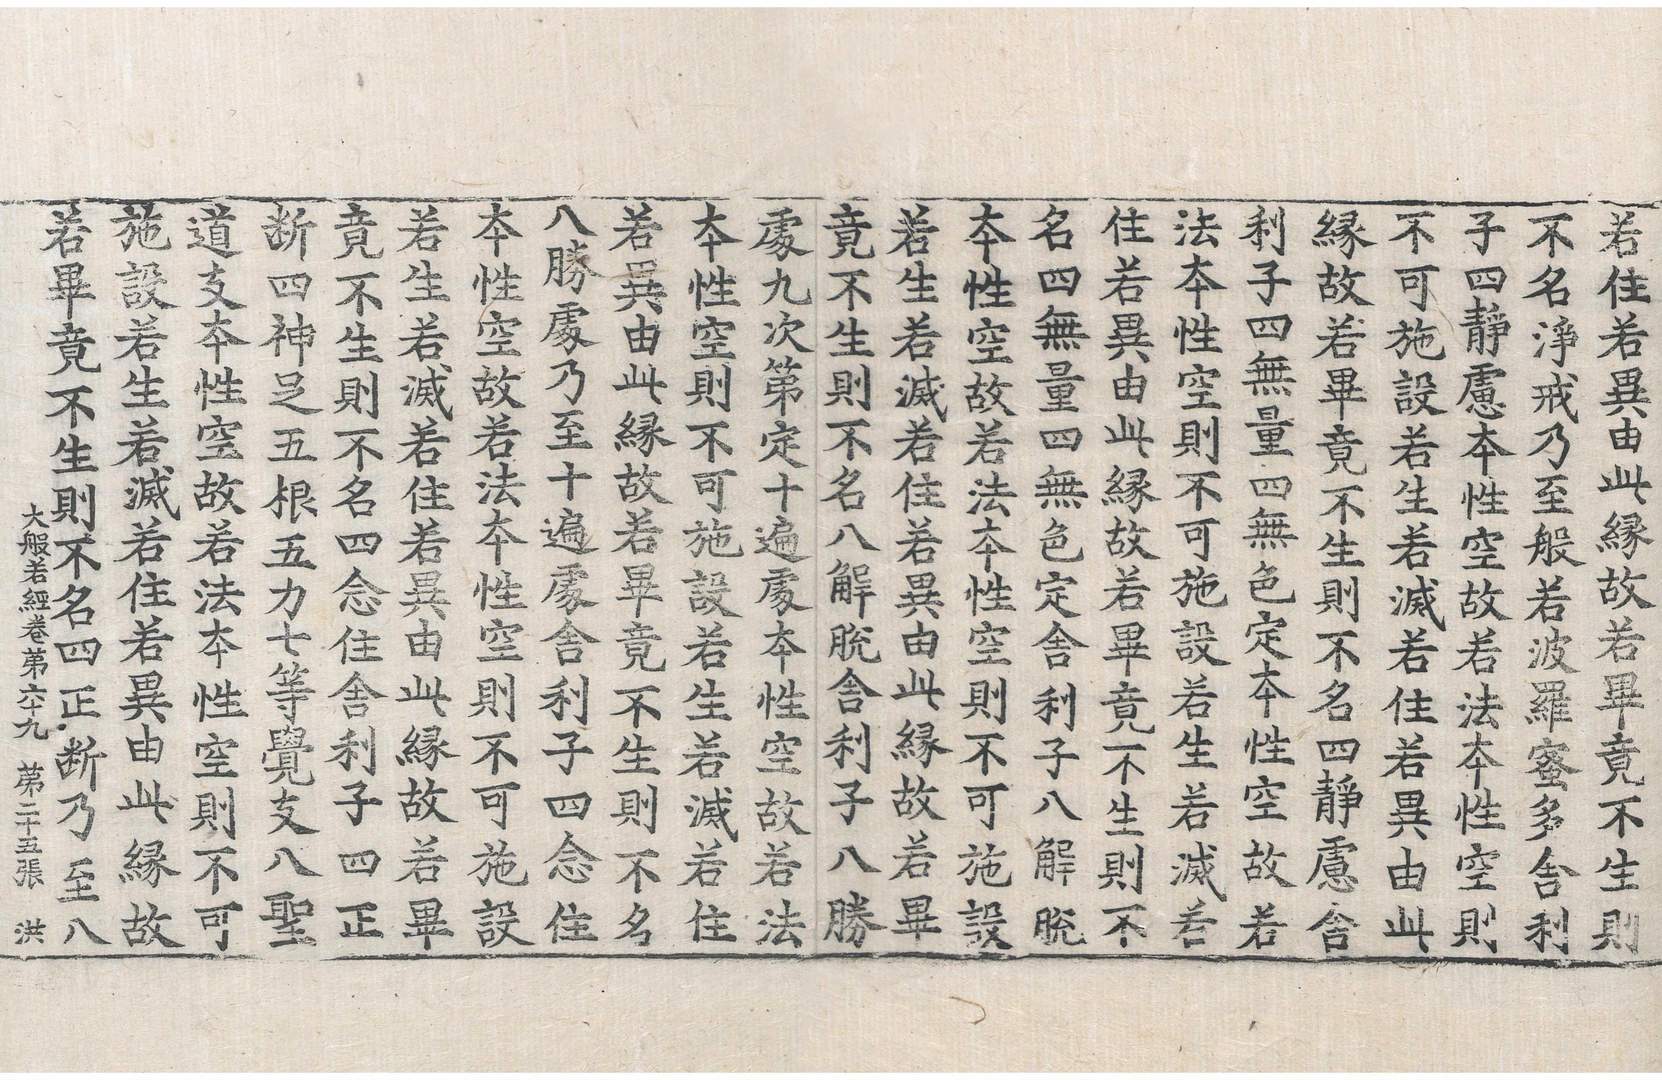 若住若異由此縁故若畢竟不生則
不名淨戒乃至般若波羅蜜多舍利
子四靜慮本性空故若法本性空則
不可施設若生若滅若住若異由此
縁故若畢竟不生則不名四靜慮舍
利子四無量四無色定本性空故若
法本性空則不可施設若生若滅若
住若異由此縁故若畢竟不生則不
名四無量四無色定舍利子八解脫
本性空故若法本性空則不可施設
若生若滅若住若異由此縁故若畢
竟不生則不名八解脫舍利子八勝
處九次第定十遍處本性空故若法
本性空則不可施設若生若滅若住
若異由此縁故若畢竟不生則不名
八勝處乃至十遍處舍利子四念住
本性空故若法本性空則不可施設
若生若滅若住若異由此縁故若畢
竟不生則不名四念住舍利子四正
断四神足五根五力七等覺支八聖
道支本性空故若法本性空則不可
施設若生若滅若住若異由此縁故
若畢竟不生則不名四正断乃至八
大般若經卷第六十九 第二十五張 洪